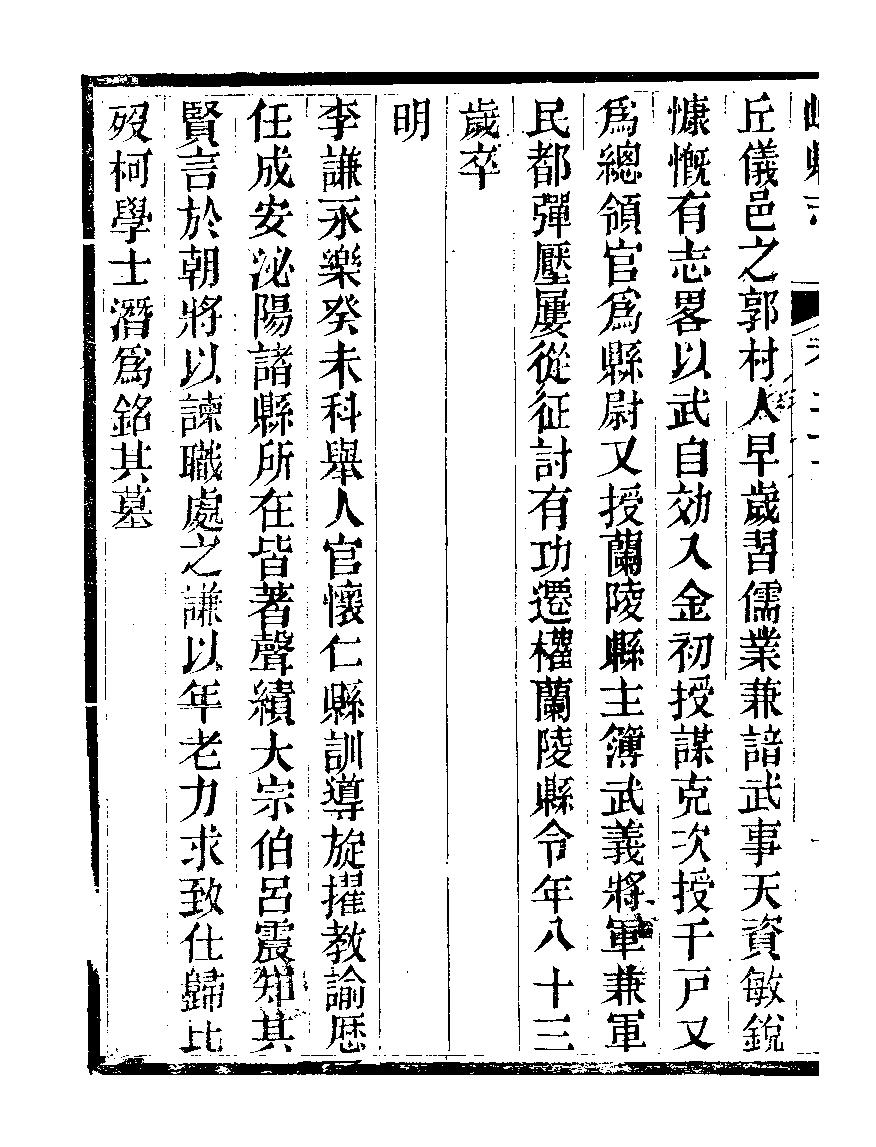 丘儀邑之郭村人早歲習儒業兼諳武事天資敏銳
慷慨有志畧以武自効入金初授謀克次授千戸又
爲總領官爲縣尉又授蘭陵縣主簿武義將軍兼軍
民都彈壓屢從征討有功遷權蘭陵縣令年八十三
歲卒
明
李謙永樂癸未科舉人官懷仁縣訓導旋擢教諭歷
任成安泌陽諸縣所在皆著聲績大宗伯呂震知其
賢言於朝將以諫職處之謙以年老力求致仕歸比
歿柯學士潛爲銘其墓